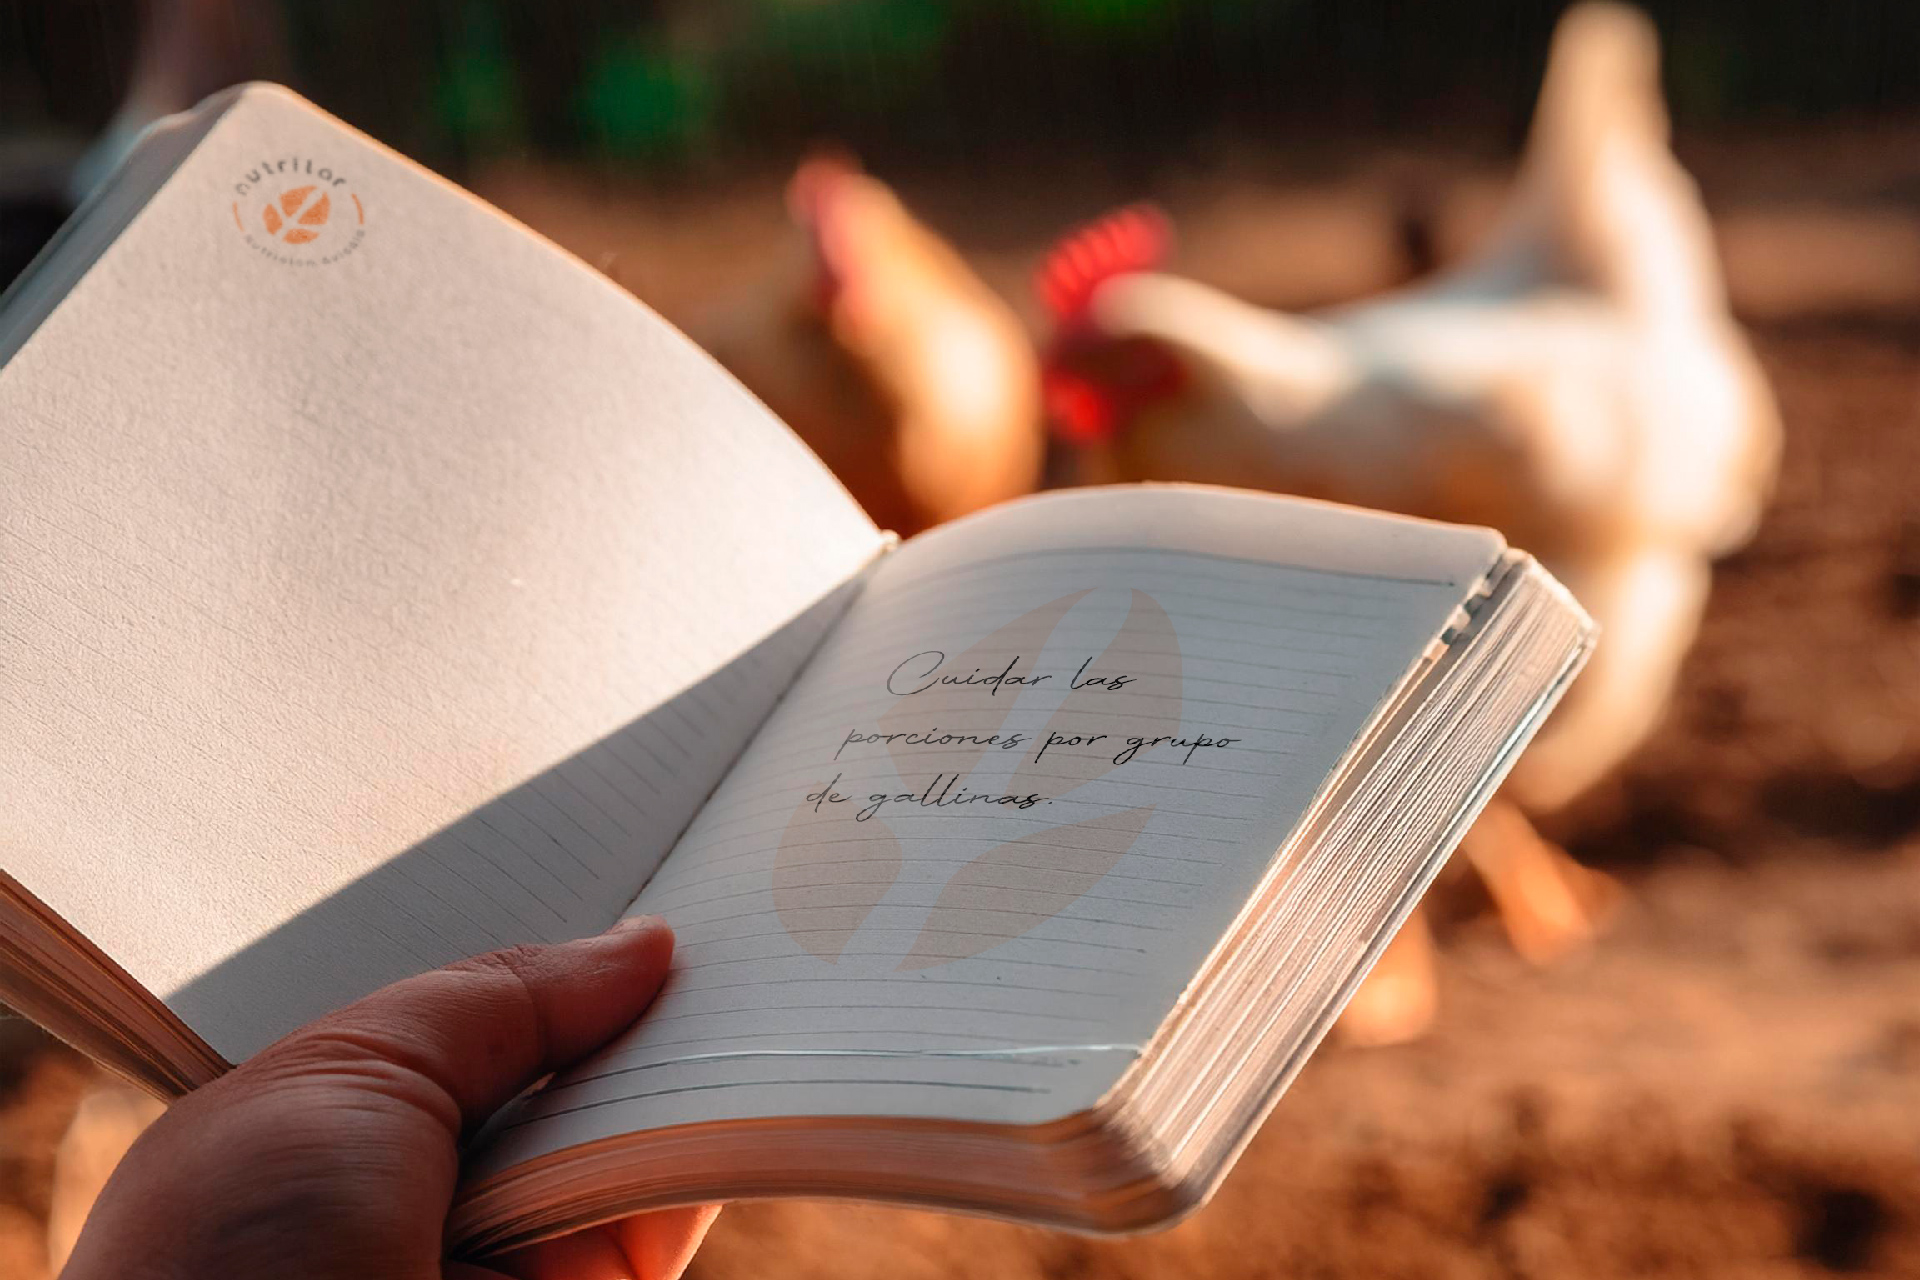 nutrilor
nutrición avícola
Cuidar las
porciones por grupo
de gallinas.